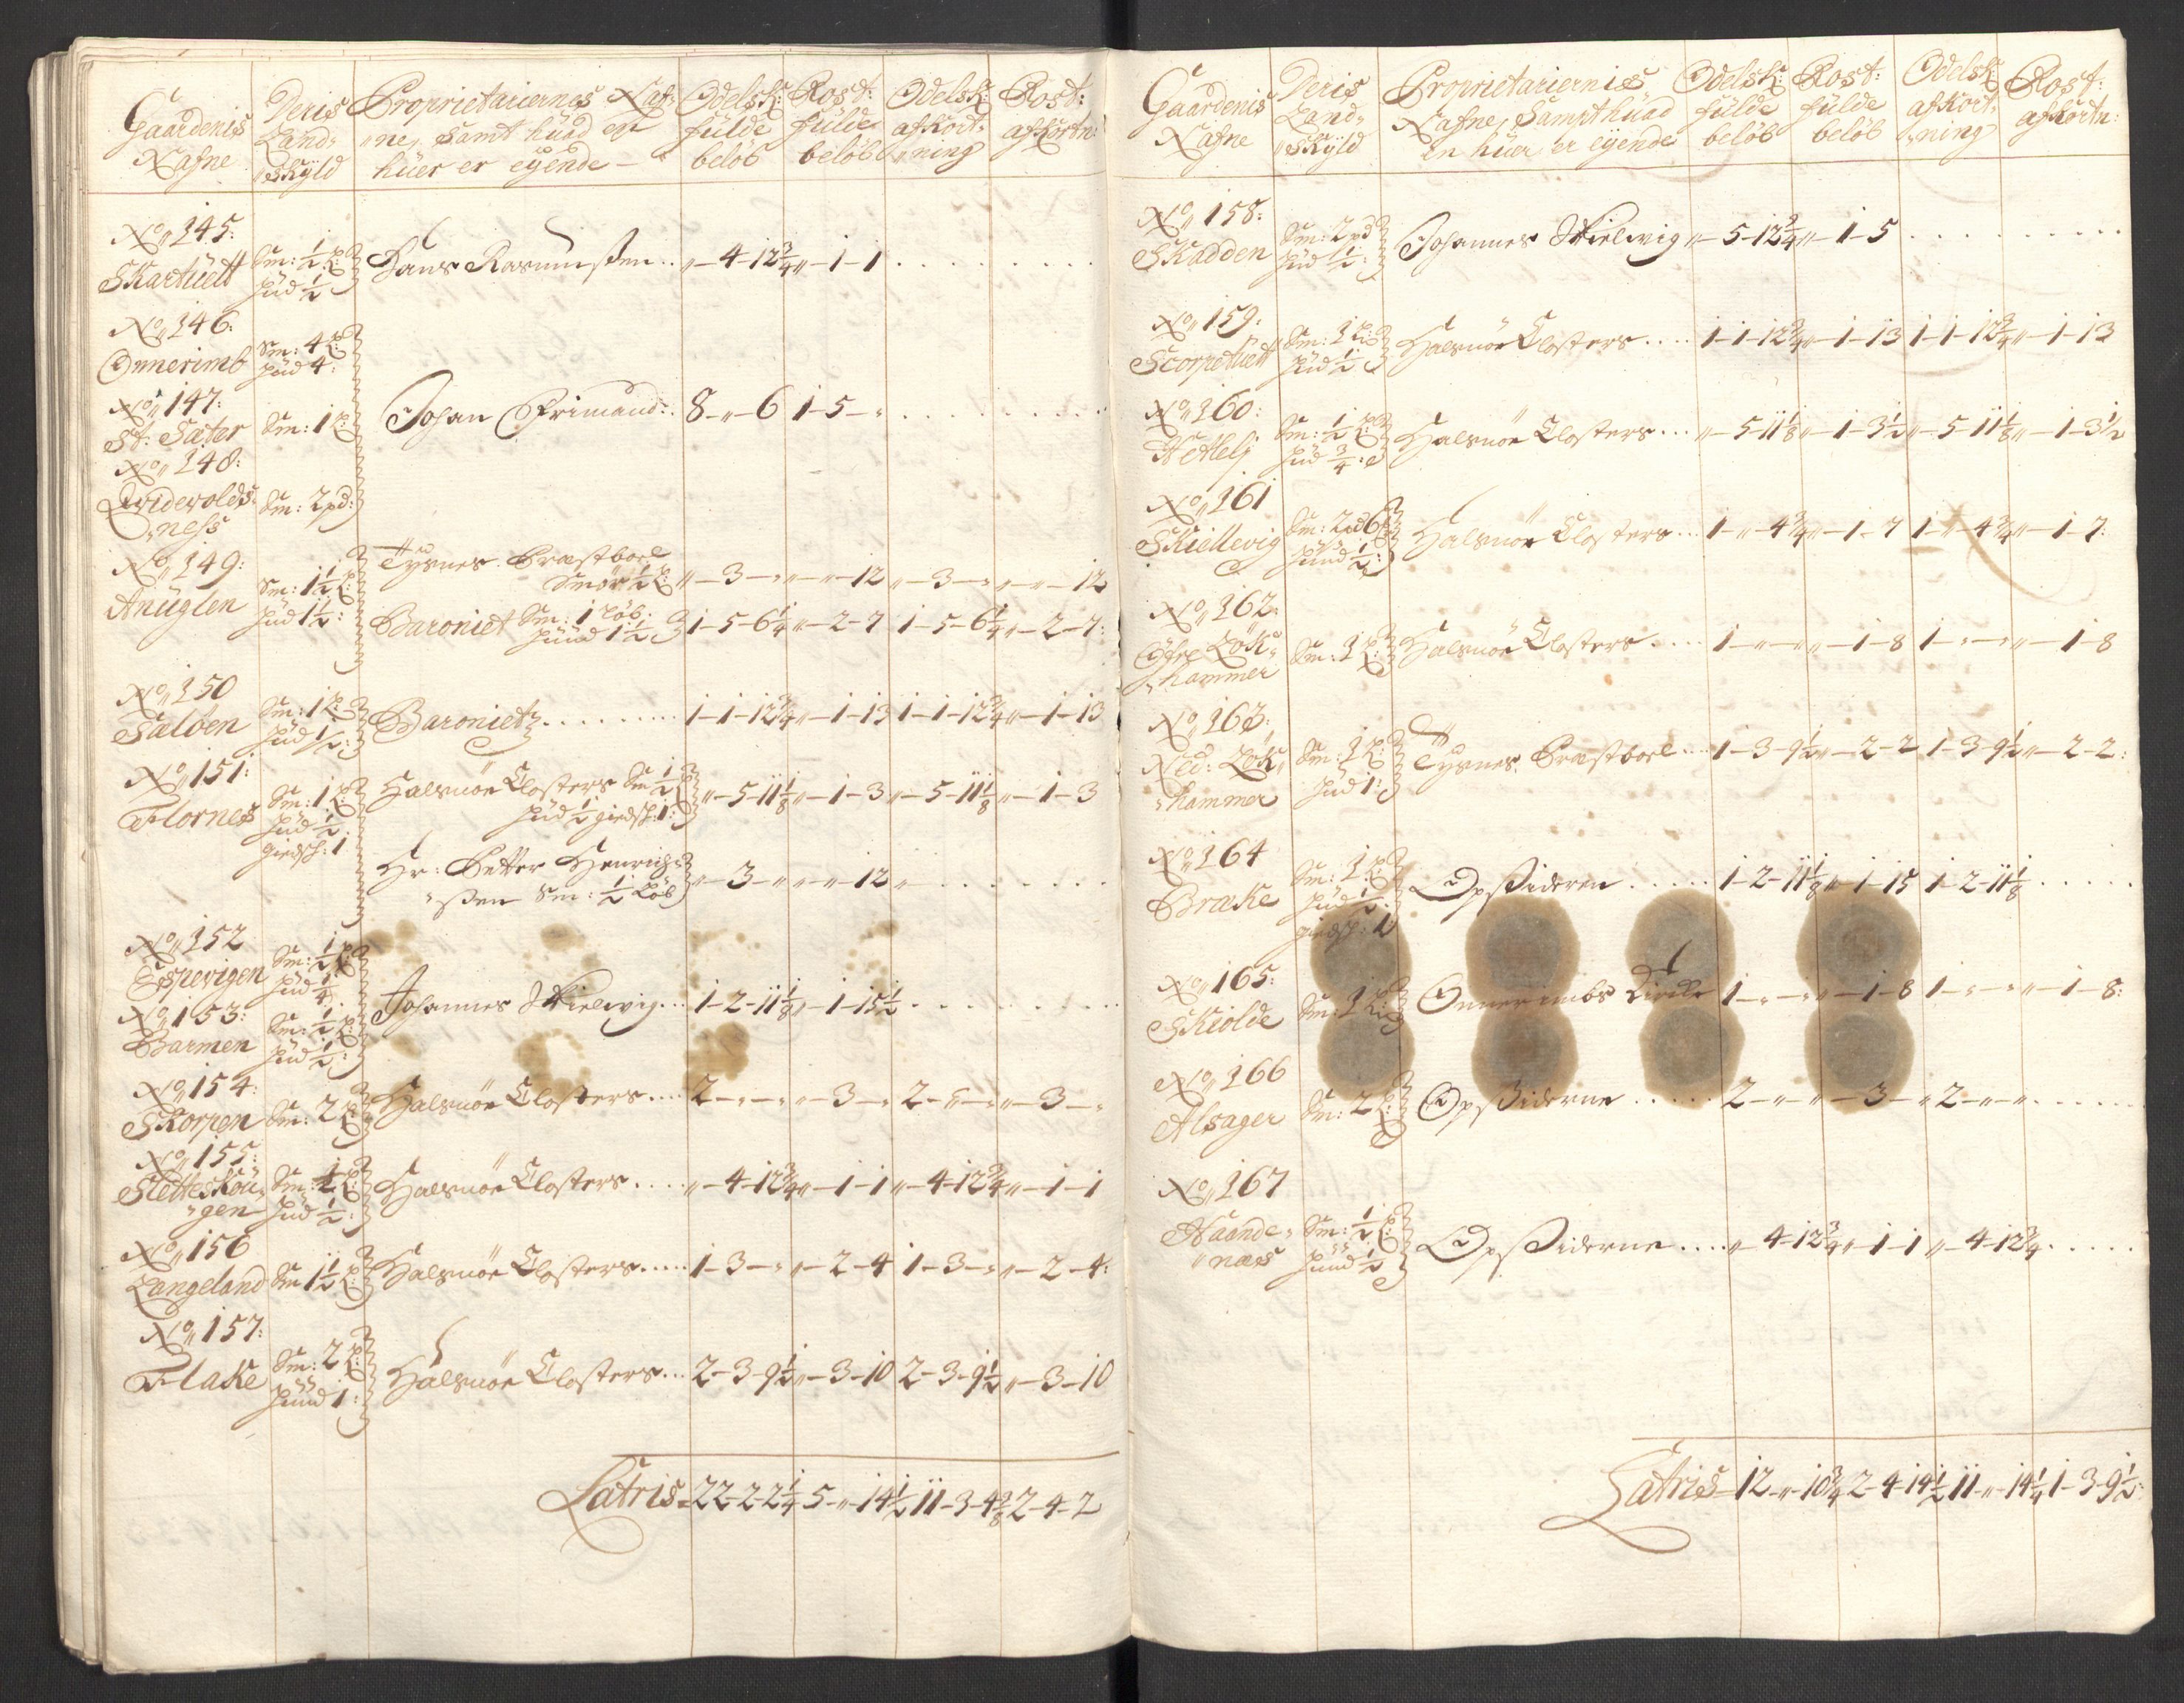 Gaardenis Nafne | Deris Land- skyld | Proprietariernes Naf- ne, samt huad en huer er eyende | Odelsk: fulde beløb | Rost: fulde beløb | Odelsk afkort- ning | Rost: afkortn:
No 145: Skartuett | Sm: ½ L: hud ½ | Hans Rasmussen | " - 4 - 12¾ | " - 1 - 1
No 146: Onnerimb | Sm: 4 L: hud 4:
No 147: St: Sæter | Sm: 1 L: | Johan Frimand: | 8 - " - 6 | 1 - 5 - "
No 148: Qvidevolds- ness | Sm: 2 pd:
No 149: Anuglen | Sm: 1½ L: hud 1½: | Tysnes Præstboel Smør ½ L: | " - 3 - " | " - " - 12 | " - 3 - " | " - " - 12
Baroniet Sm: 1 løb: huud 1½ | 1 - 5 - 6¼ | " - 2 - 7 | 1 - 5 - 6¼ | " - 2 - 7:
No 150 Salöen | Sm: 1 L: hud ½: | Baroniet | 1 - 1 - 12¾ | " - 1 - 13 | 1 - 1 - 12¾ | " - 1 - 13
No 151: Flornes | Sm: 1 L: hud ½ giedsk: 1 | Halsnöe Closters Sm ½ L hud ½ giedsk: 1: | " - 5 - 11⅛ | " - 1 - 3 | " - 5 - 11⅛ | " - 1 - 3
Hr: Petter Henrich- ssen Sm: ½ Løb | " - 3 - " | " - " - 12
No 152 Espevigen | Sm: ½ L: hud ¼
No 153: Barmen | Sm: ½ L: hud ½: | Johannes Mielwig | 1 - 2 - 11⅛ | " - 1 - 15½
No 154: Skorpen | Sm: 2 L: | Halsnöe Closters | 2 - " - " | " - 3 - " | 2 - " - " | " - 3 - "
No 155: Sletteskou- gen | Sm: ½ L: hud ½: | Halsnöe Closters | " - 4 - 12¾ | " - 1 - 1 | " - 4 - 12¾ | " - 1 - 1
No 156 Langeland | Sm 1½ L: | Halsnöe Closters | 1 - 3 - " | " - 2 - 4 | 1 - 3 - " | " - 2 - 4:
No 157: Flake | Sm: 2 L: huud 1: | Halsnöe Closters | 2 - 3 - 9½ | " - 3 - 10 | 2 - 3 - 9½ | " - 3 - 10
Latris | 22 - 2 - 2¼ | 5 - " - 14½ | 11 - 3 - 4⅜ | 2 - 4 - 2
Gaardenis Nafne | Deris Land- skyld | Proprietariernis Nafne, Sampt huad en huer er eyende | Odelsk: fulde beløb | Rost: fulde beløb | Odelsk afkort- ning | Rost: afkortn:
No 158: Skadden | Sm: 2 pd hud ½: | Johannes Mielwig | " - 5 - 12¾ | " - 1 - 5
No 159: Scorpetuett | Sm: 1 L: hud ½ | Halsnöe Closters | 1 - 1 - 12¾ | " - 1 - 13 | 1 - 1 - 12¾ | " - 1 - 13
No 160: Netteli | Sm: ½ L: hud ¾: | Halsnöe Closters | " - 5 - 11⅛ | " - 1 - 3½ | " - 5 - 11⅛ | " - 1 - 3½
No 161 Skiellevig | Sm: 2 pd 6 huud ½: | Halsnöe Closters | 1 - " - 4¾ | " - 1 - 7 | 1 - " - 4¾ | " - 1 - 7:
No 162: Öfre Løk- hammer | Sm: 1 L: | Halsnöe Closters | 1 - " - " | " - 1 - 8 | 1 - " - " | " - 1 - 8
No 163: Ned: Løk- hammer | Sm: 1 L: hud 1: | Tysnes Præstboel | 1 - 3 - 9½ | " - 2 - 2 | 1 - 3 - 9½ | " - 2 - 2:
No 164 Bræke | Sm: 1 L: hud ½: giedsk: 1 | Opsidderen | 1 - 2 - 11⅛ | " - 1 - 15 | 1 - 2 - 11⅛
No 165: Skiolde | Sm: 1 L: | Onnerimbs Kirke | 1 - " - " | " - 1 - 8 | 1 - " - " | " - 1 - 8:
No 166 Alsager | Sm: 2 L: | Opsidderne | 2 - " - " | " - 3 - " | 2 - " - "
No 167 Naande- næs | Sm: ½ L: huud ½ | Opsidderne | " - 4 - 12¾ | " - 1 - 1 | " - 4 - 12¾
Latris | 12 - " - 10¾ | 2 - 4 - 14½ | 11 - " - 14¼ | 1 - 3 - 9½: